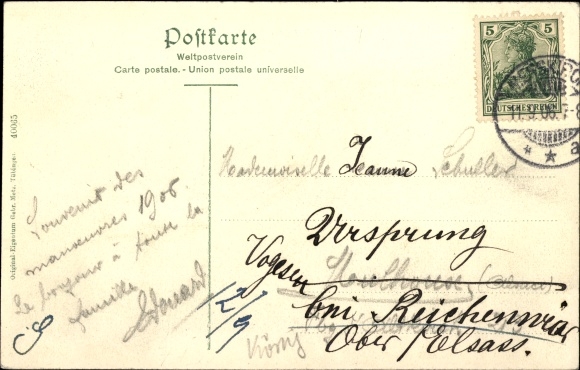 Postkarte
Weltpostverein
Carte postale. - Union postale universelle
5 5
DEUTSCHES REICH
11.9.06.7-8
* * a
Original-Eigentum Gebr. Metz, Tübingen. 46005
Mademoiselle Jeanne Schuller
Ursprung
Vogesen Mulhouse (Alsace)
bei Reichenweier
Ober Elsass.
Souvenir des
manœuvres 1906
Le bonjour à toute la
famille
Edouard
12/9